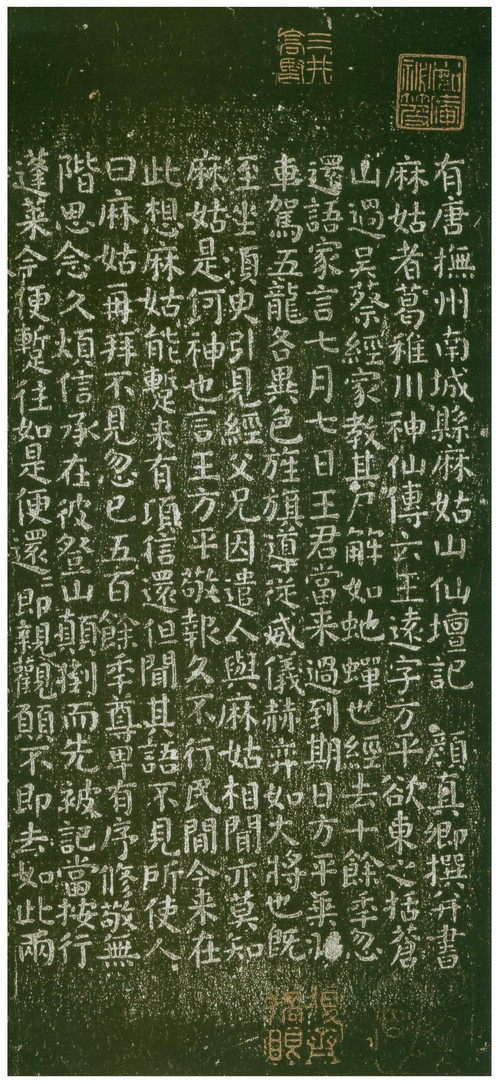 有唐撫州南城縣麻姑山仙壇記 顏真卿撰并書
麻姑者葛稚川神仙傳云王遠字方平欲東之括蒼
山過吳蔡經家教其尸解如虵蟬也經去十餘年忽
還語家言七月七日王君當来過到期日方平乘羽
車駕五龍各異色旌旗導從威儀赫弈如大將也既
至坐須臾引見經父兄因遣人與麻姑相聞亦莫知
麻姑是何神也言王方平敬報久不行民間今来在
此想麻姑能蹔来有頃信還但聞其語不見所使人
曰麻姑再拜不見忽已五百餘年尊卑有序修敬無
階思念久煩信承在彼登山顛倒而先被記當按行
蓬萊今便蹔往如是便還還即親觀願不即去如此兩
三井
高堅